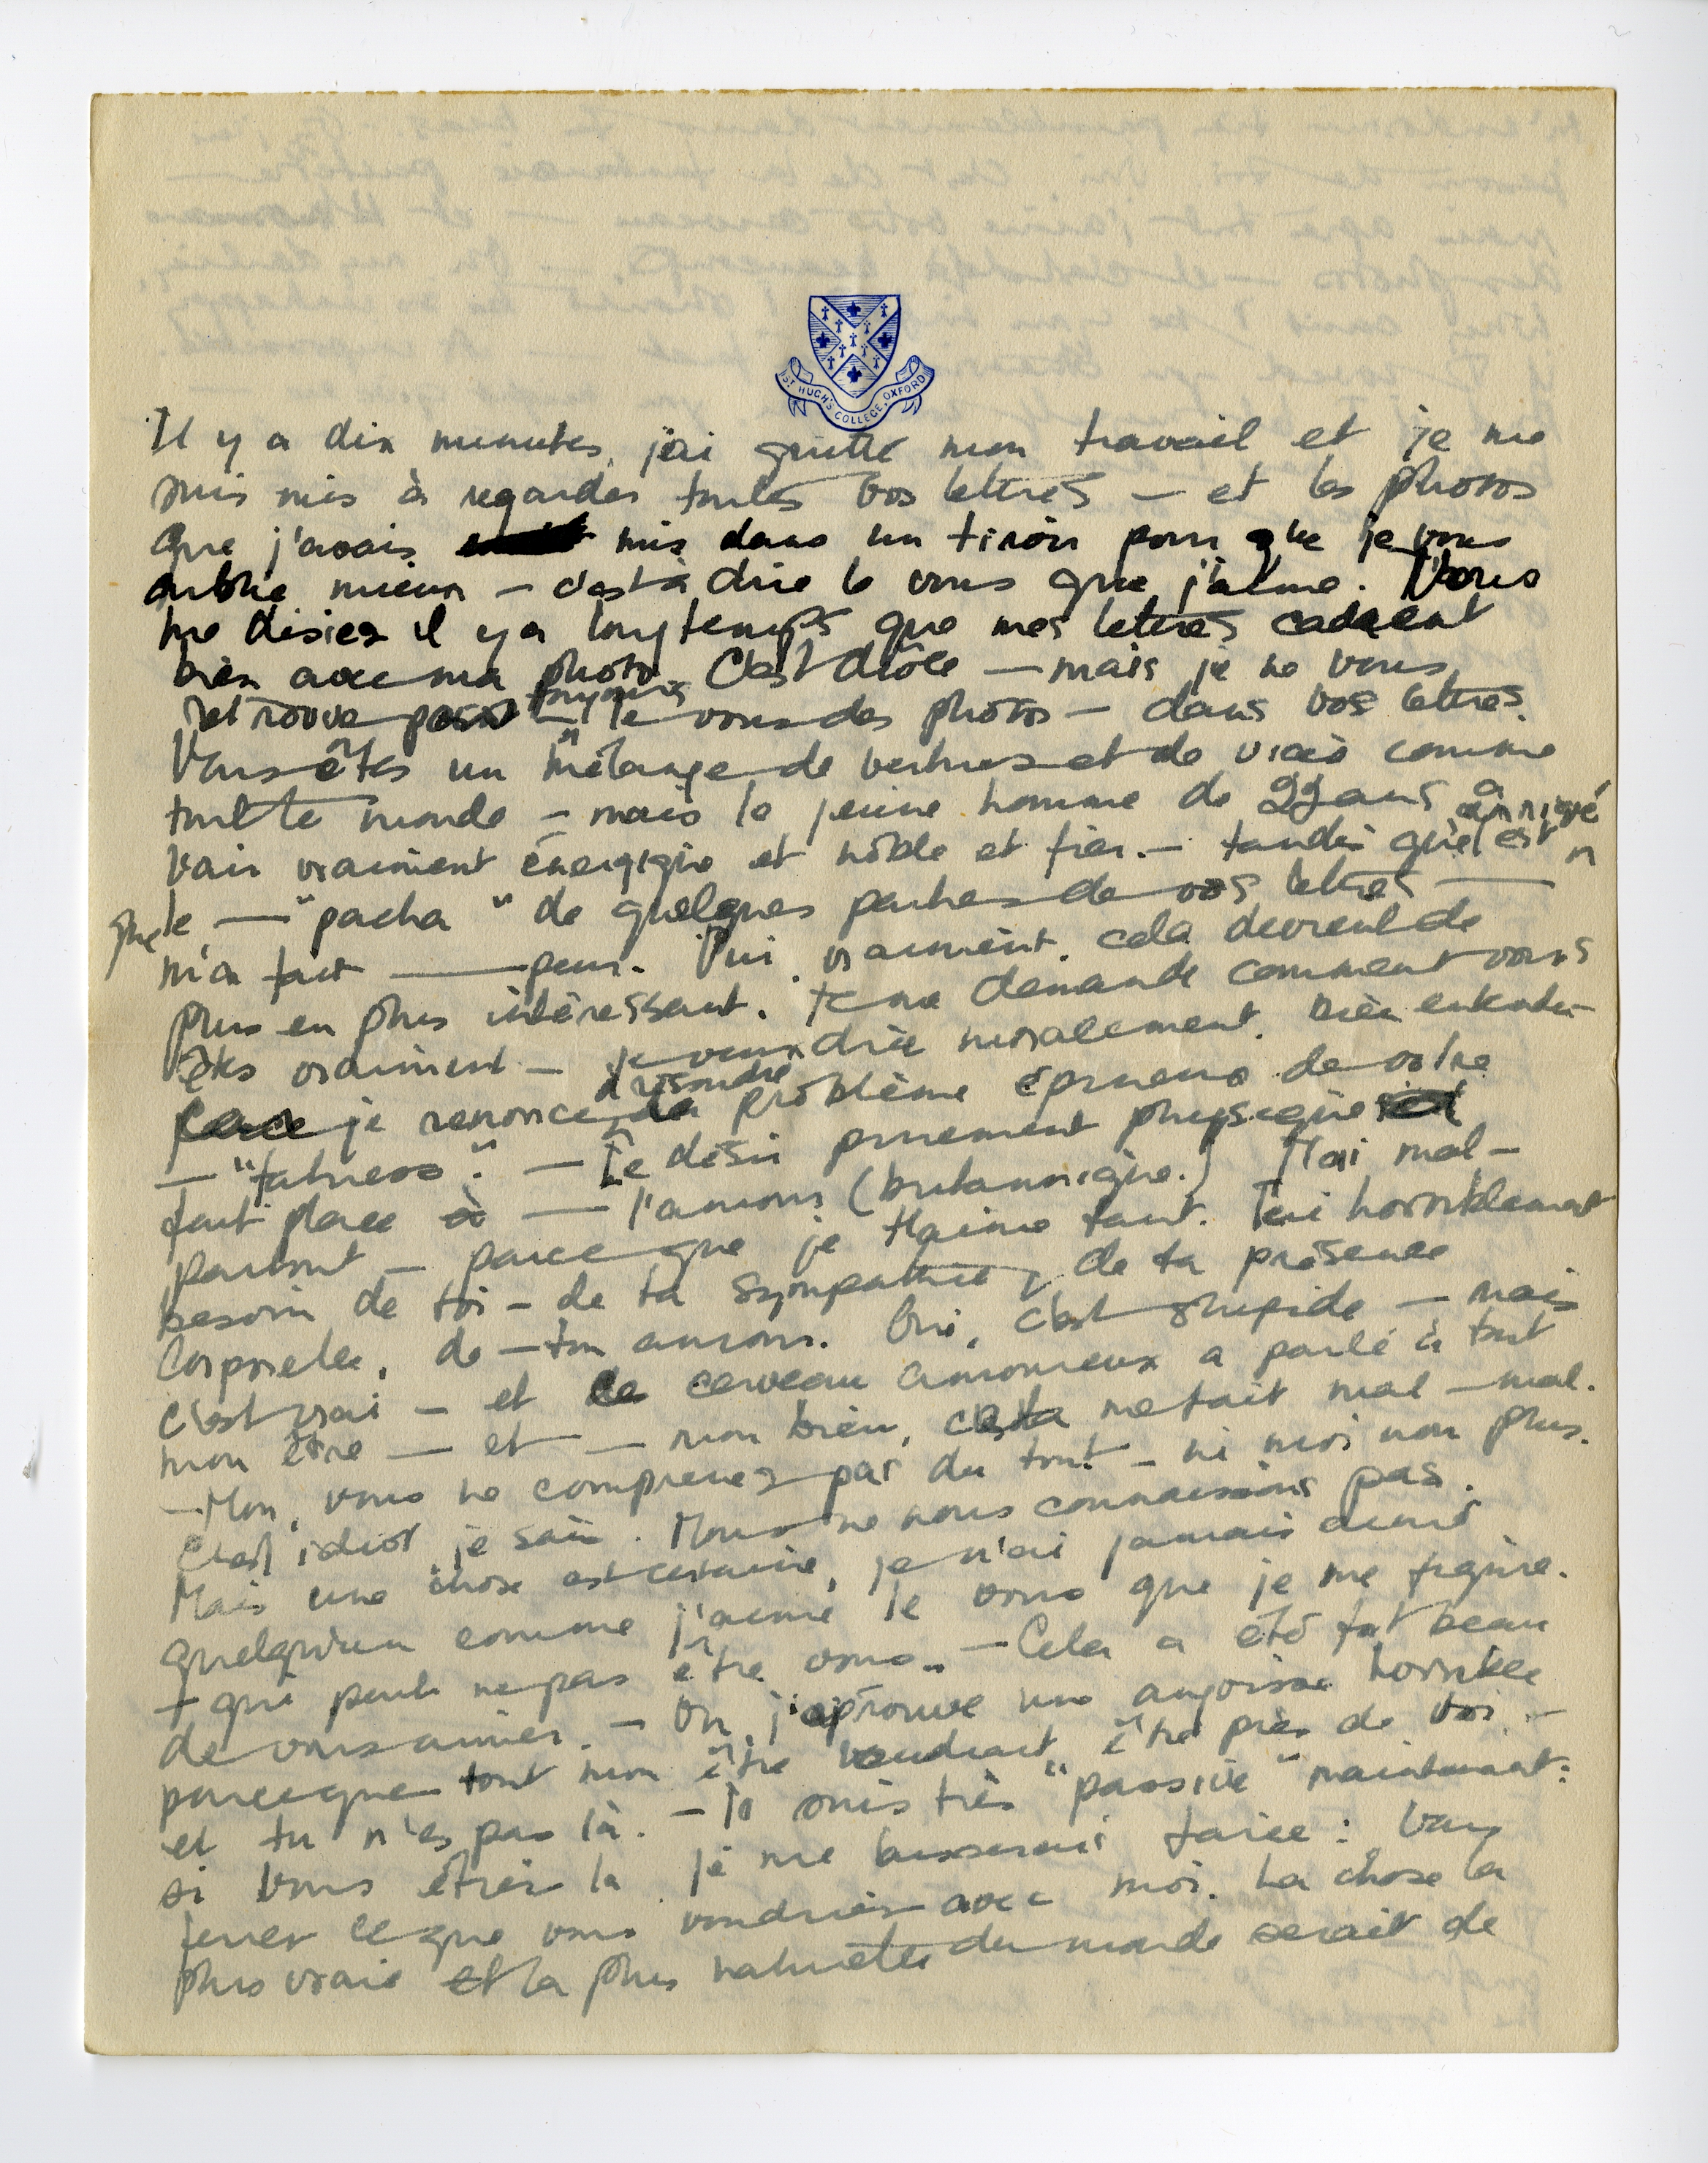 ST. HUGH'S COLLEGE, OXFORD
Il y a dix minutes, j'ai quitté mon travail et je me
suis mis à regarder toutes vos lettres – et les photos
que j'avais mis dans un tiroir pour que je vous
oublie mieux – c'est à dire le vous que j'aime. Vous
me disiez il y a longtemps que mes lettres cadrent
bien avec ma photo. C'est drôle – mais je ne vous
retrouve pas toujours – le vous des photos – dans vos lettres.
Vous êtes un mélange de vertues et de vices comme
tout le monde – mais le jeune homme de 22 ans a
l'air vraiment énergique et noble et fier. – tandis qu'el est arrivé
que le – "pacha" de quelques parties de vos lettres –
m'a fait – peur. Oui, vraiment, cela devient de
plus en plus intéressant. Je me demande comment vous
êtes vraiment – je veux dire moralement. Bien entendu
je renonce à résoudre la problème épineux de votre
– "fatness". – Le désir purement physique
fait place à – l'amour (britannique.) Moi mal-
partout – parce que je t'aime tant. J'ai horriblement
besoin de toi – de ta sympathie, de ta présence
corporelle, de – ton amour. Oui, c'est stupide – mais
c'est vrai – et ce cerveau amoureux a parlé à tout
mon être – et – mon bien, cela me fait mal – mal.
– Non, vous ne comprenez pas du tout – ni moi non plus.
C'est idiot, je sais. Nous ne nous connaissons pas.
Mais une chose est certaine, je n'ai jamais aimé
quelqu'un comme j'aime le vous que je me figure.
– qui peut ne pas être vous. – Cela a été fort beau
de vous aimer. – Oh, j'éprouve une angoisse horrible
parce que tout mon être voudrait être près de toi –
et tu n'es pas là. – Je suis très "passive" maintenant:
si vous étiez là je me laisserais faire: vous
feriez ce que vous voudriez avec moi. La chose la
plus vraie et la plus naturelle du monde serait de